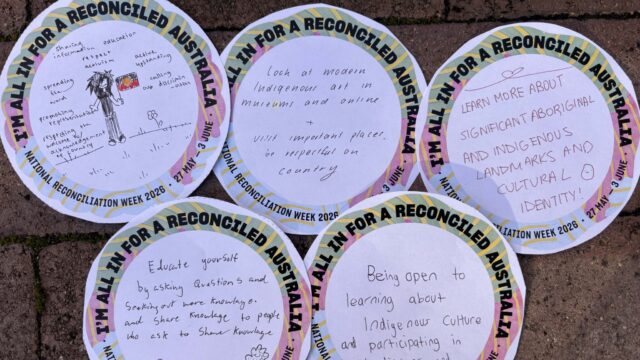 I'M ALL IN FOR A RECONCILED AUSTRALIA
NATIONAL RECONCILIATION WEEK 2026 • 27 MAY - 3 JUNE
sharing information
education
respect
activism
active upstanding
spreading the word
calling out
promoting representation
respecting welcome / acknowledgement of country
I'M ALL IN FOR A RECONCILED AUSTRALIA
NATIONAL RECONCILIATION WEEK 2026 •
Look at modern
Indigenous art in
museums and online
+
visit important places,
be respectful on
country
I'M ALL IN FOR A RECONCILED AUSTRALIA
NATIONAL RECONCILIATION WEEK 2026 • 27 MAY - 3 JUNE
LEARN MORE ABOUT
SIGNIFICANT ABORIGINAL
AND INDIGENOUS
LANDMARKS AND
CULTURAL
IDENTITY!
I'M ALL IN FOR A RECONCILED AUSTRALIA
NATIONAL
JUNE
Educate yourself
by asking Questions and
Seeking out more knowledge.
and Share Knowledge to people
who ask to Share Knowledge
I'M ALL IN FOR A RECONCILED AUSTRALIA
NATIONAL
3 JUNE
Being open to
learning about
Indigenous Culture
and participating in